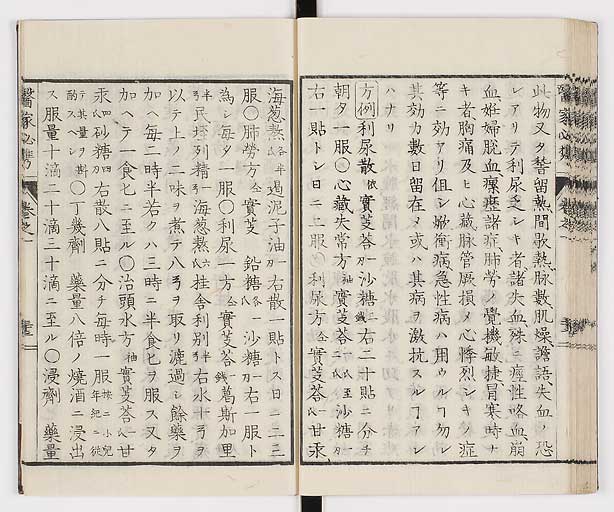 此物又タ瞀留熱間歇熱脉數肌燥譫語失血ノ恐
レアリテ利尿乏シキ者諸失血殊ニ痙性咯血崩
血妊婦脱血瘰癧諸症肺勞ノ覺機敏捷冒寒時ナ
キ者胸痛及ヒ心藏脉管厥損メ心悸烈シキノ症
等ニ効アリ但シ歇衝病急性病ハ用ウルヿ勿レ
其効力數日留在メ或ハ其病ヲ激抗スルヿアレ
ハナリ
方例 利尿散 實芰荅 沙糖 右二十貼ニ分チ
朝夕一服〇心藏失常方 實芰荅 至沙糖
右一貼トシ日ニ上服〇利尿方 實芰荅 甘汞
海葱煞 各半 遏泥子油 右散一貼トス日ニ二三
服〇肺勞方 實芰 鉛糖 各一 沙糖 右一服ト
為シ每夕一服〇利尿一方 實芰荅 葛斯加里
民垤列精 海葱煞 桂舎利別 右水十弓ヲ
以テ上ノ二味ヲ煮テ八弓ヲ取リ漉過シ餘藥ヲ
加ヘ每二時半若クハ三時ニ半食匕ヲ服ス又タ
加ヘテ一食匕ニ至ル〇治頭水方 實芰荅 甘
汞 砂糖 右散八貼ニ分チ每時一服 小兒年紀ニ從
テ其量ヲ斟酌スヘシ 〇丁幾劑 藥量八倍ノ燒酒ニ浸出
ス服量十滴二十滴三十滴ニ至ル〇浸劑 藥量
醫家必攜 卷之一